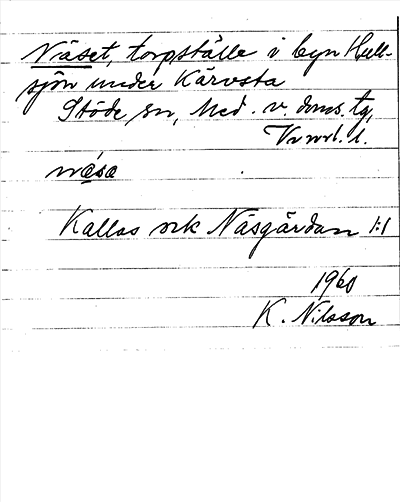 Näset, torpställe i byn Hull-
sjön under Kärvsta
Stöde sn, Med. v. doms. tg,
Vnorl. l.
näsa
Kallas ock Näsgårdan 1:1
1960
K. Nilsson